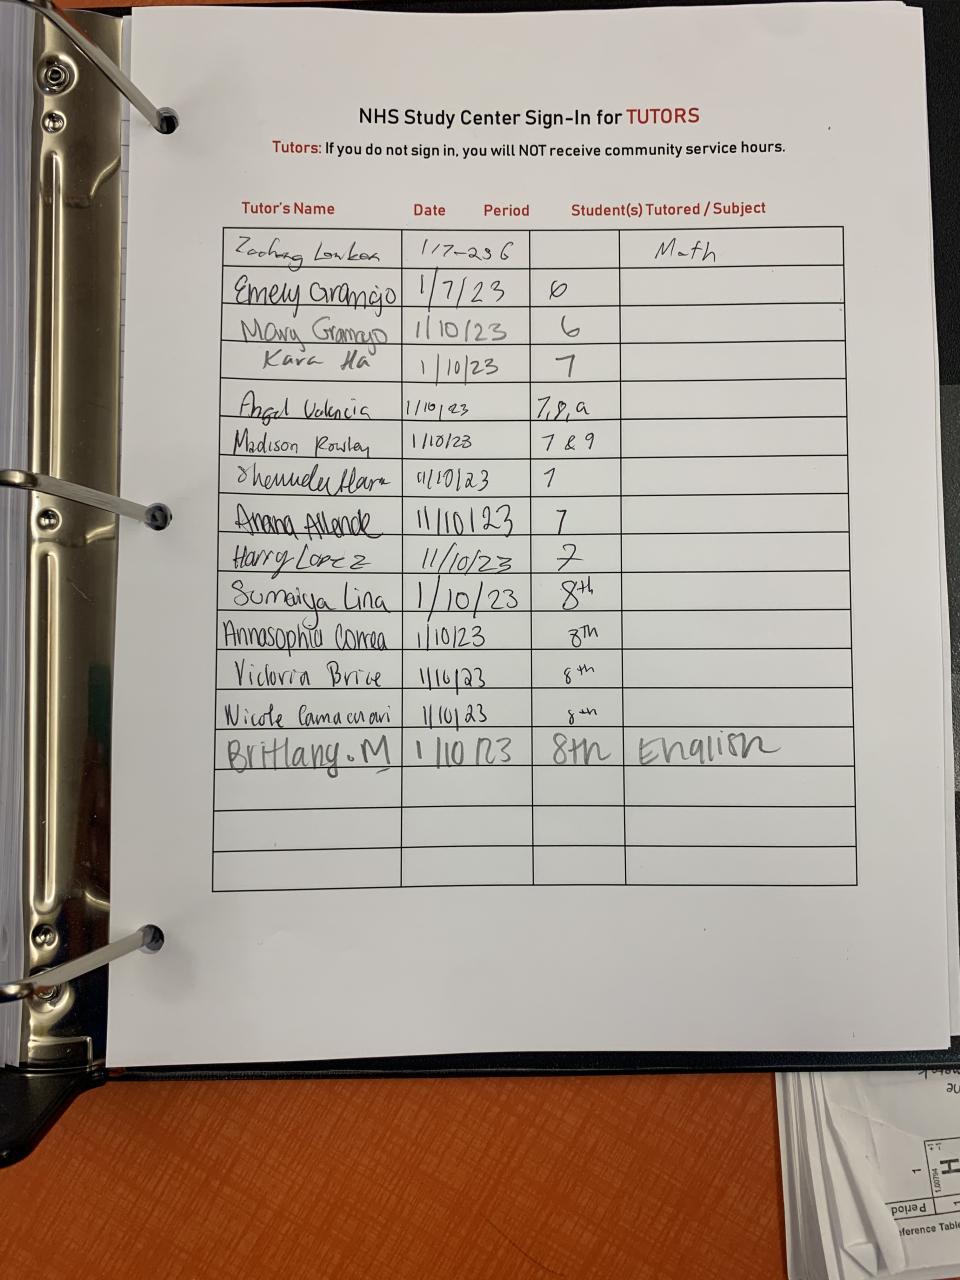 NHS Study Center Sign-In for TUTORS
Tutors: If you do not sign in, you will NOT receive community service hours.
Tutor's Name Date Period Student(s) Tutored / Subject
1/7-23 6 Math
Emely Gramajo 1/7/23 6
Mary Gramajo 1/10/23 6
Kara Ha 1/10/23 7
Angel Valencia 1/10/23 7,8,9
Madison Rowley 1/10/23 7 & 9
1/10/23 7
Allende 11/10/23 7
Harry Lopez 11/10/23 7
Sumaiya Lina 1/10/23 8th
Annasophia Correa 1/10/23 8th
Victoria Brice 1/10/23 8th
Nicole 1/10/23 8th
Brittany.M 1/10/23 8th English
Period
1
1.00794
+1
-1
H
1
eference Table